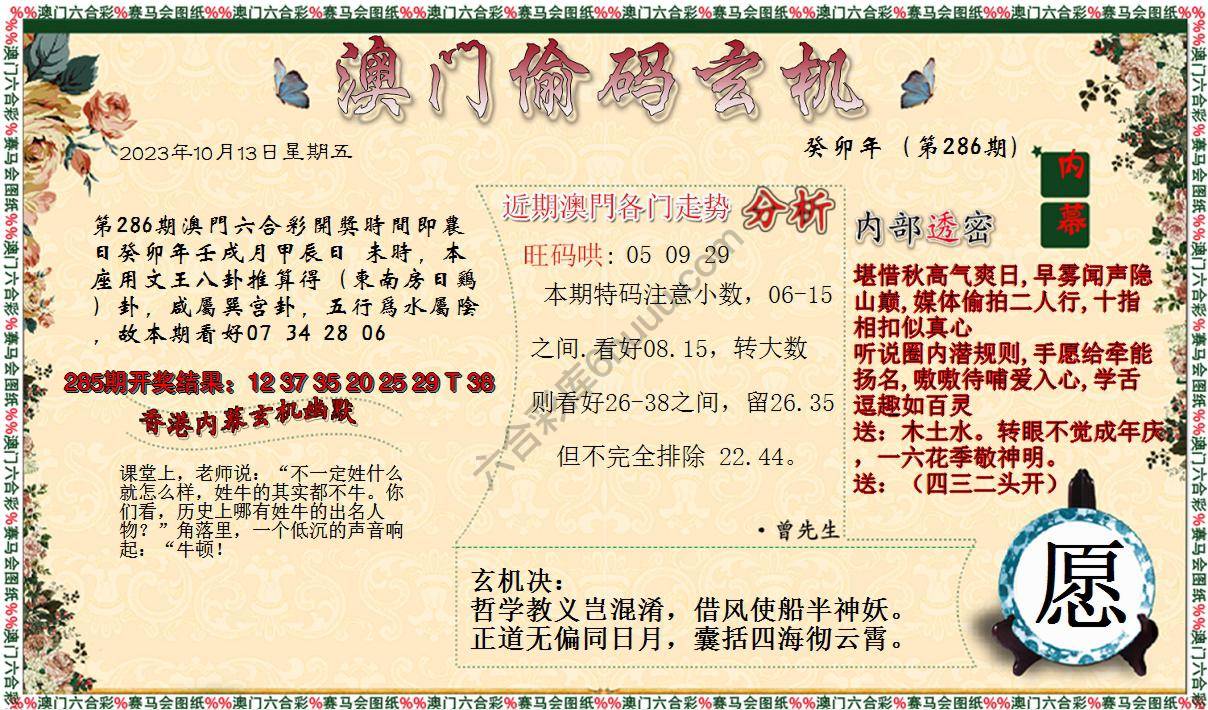 %%澳门六合彩%赛马会图纸%%澳门六合彩%赛马会图纸%%澳门六合彩%赛马会图纸%%澳门六合彩%赛马会图纸%%澳门六合彩%赛马会图纸%%澳门六合彩%赛马会图纸%%
澳门偷码玄机
2023年10月13日星期五
癸卯年（第286期）
内幕
第286期澳門六合彩開獎時間即農
日癸卯年壬戌月甲辰日 未時，本
座用文王八卦推算得（東南房日鷄
）卦，咸屬巽宫卦，五行爲水屬陰
，故本期看好07 34 28 06
285期开奖结果：12 37 35 20 25 29 T 38
香港内幕玄机幽默
课堂上，老师说：“不一定姓什么
就怎么样，姓牛的其实都不牛。你
们看，历史上哪有姓牛的出名人
物？”角落里，一个低沉的声音响
起：“牛顿！
近期澳門各门走势 分析
旺码哄: 05 09 29
本期特码注意小数，06-15
之间.看好08.15，转大数
则看好26-38之间，留26.35
但不完全排除 22.44。
·曾先生
内部透密
堪惜秋高气爽日,早雾闻声隐
山巅,媒体偷拍二人行,十指
相扣似真心
听说圈内潜规则,手愿给牵能
扬名,嗷嗷待哺爱入心,学舌
逗趣如百灵
送：木土水。转眼不觉成年庆
，一六花季敬神明。
送：（四三二头开）
玄机决：
哲学教义岂混淆，借风使船半神妖。
正道无偏同日月，囊括四海彻云霄。
愿